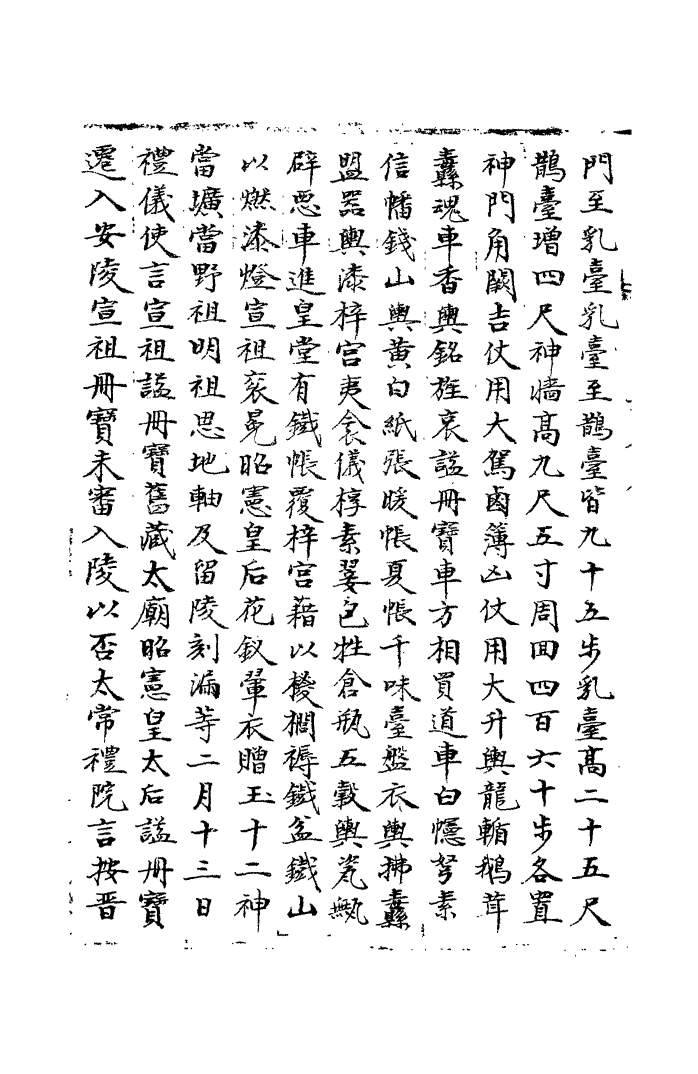 門至乳臺乳臺至鵲臺皆九十五步乳臺髙二十五尺
鵲臺增四尺神墻髙九尺五寸周回四百六十步各置
神門角闕吉仗用大駕鹵簿凶仗用大升輿龍輴鵝茸
纛魂車香輿銘旌哀謚冊寶車方相買道車白幰弩素
信幡錢山輿黄白紙張暖帳夏帳千味臺盤衣輿拂纛
盟器輿漆梓宫夷衾儀椁素翣包牲倉瓶五榖輿瓷甒
辟惡車進皇堂有鐵帳覆梓宫藉以椶櫚褥鐵盆鐵山
以燃漆燈宣祖衮冕昭憲皇后花釵翬衣贈玉十二神
當壙當野祖明祖思地軸及留陵刻漏等二月十三日
禮儀使言宣祖謚冊寶舊藏太廟昭憲皇太后謚冊寶
遷入安陵宣祖冊寶未審入陵以否太常禮院言按晋